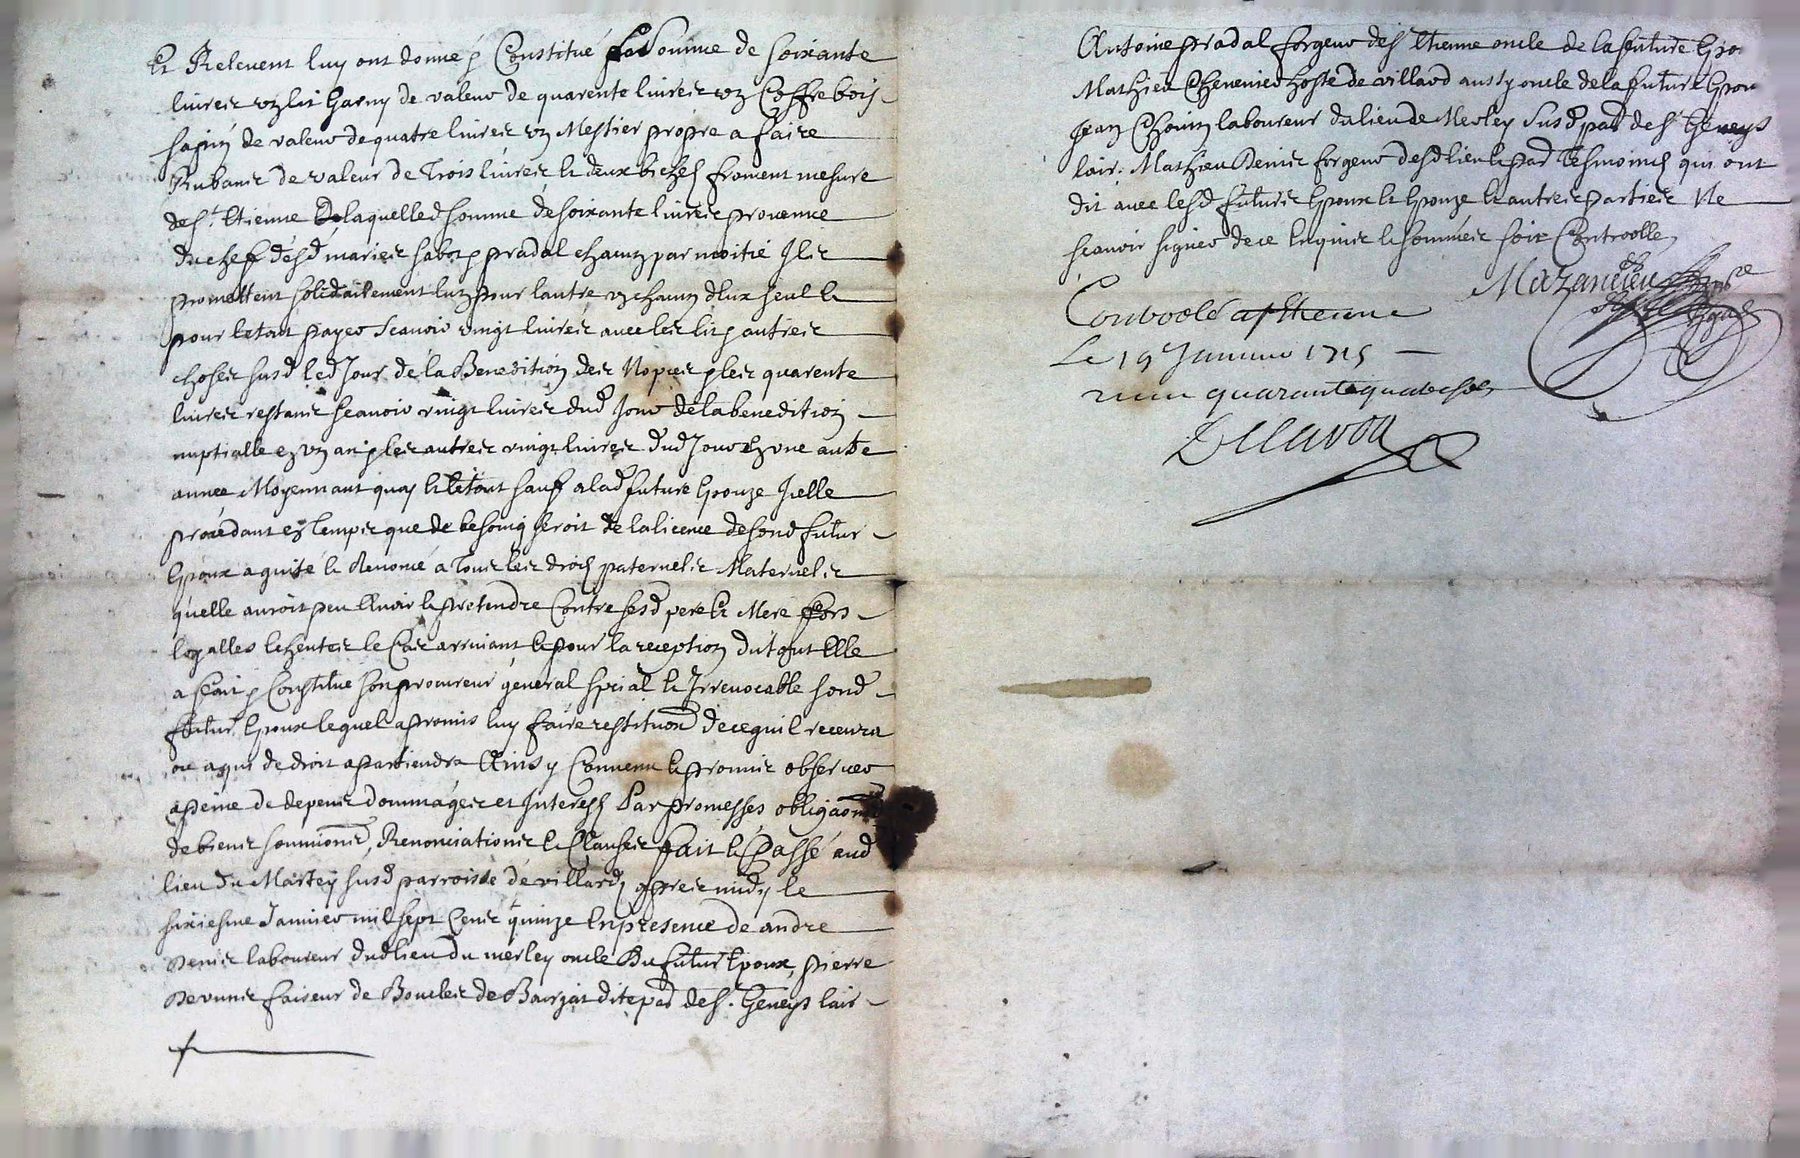 Et Relevent luy ont donné & Constitué la Somme de Soixante
livres un lit Garny de valeur de quarente livres un Coffre bois
sapin de valeur de quatre livres un Mestier propre a faire
Rubans de valeur de Trois livres et deux bichets froment mesure
de St. Etienne De laquelled somme de soixante livres provenue
du chef desd mariés & pradal chacun par moitié Ils
promettent solidairement lun pour lautre un chacun deux seul et
pour le tout payer scavoir vingt livres avec les lit & autres
choses susd led Jour de la Benedition des Nopces & les quarente
livres restans scavoir vingt livres dud Jour de la benedition
nuptialle en un an & les autres vingt livres dud Jour en une autre
année Moyennant quoy et le tout sauf a lad future Epouze Icelle
procédant en temps que de besoing seroit de la licence de sond futur
Epoux a quité et Renoncé a Tous les droits paternels Maternels
quelle auroit peu Avoir et pretendre Contre sesd pere et Mere fors
loyalles echeutes le Cas arrivant et pour la reception du tout Elle
a fait & Constitué son procureur general spécial et Irrevocable sond
futur Epoux lequel a promis luy faire restituon de ce quil recevra
ou a qui de droit apartiendra Ainsy Convenu et promis observer
a peine de depens dommages et Interests Par promesses obligaons
de biens soumions, Renonciations et Clauses fait et Passé aud
lieu du Martey susd parroisse de villard apres midy le
sixiesme Janvier mil sept Cens quinze En presence de andre
Denis laboureur dud lieu du merley oncle Du futur Epoux, pierre
faiseur de Boucles de dite par de St. Geneys lair
Antoine pradal forgeur de St Etienne oncle de la future Epou
Mathieu hoste de villard aussy oncle de la future Epou
Jean Chovin laboureur du lieu de Merley susd par de St Geneys
lair. Mathieu Denis forgeur desd lieu et par Tesmoins qui ont
dit avec lesd futurs Epoux et Epouze et autres parties Ne
scavoir signer de ce Enquis et sommés soit Controolle
Mazandieu
Controolé a St Etienne
Le 19 Janvier 1715
receu quarante quatre sols
Delavoa